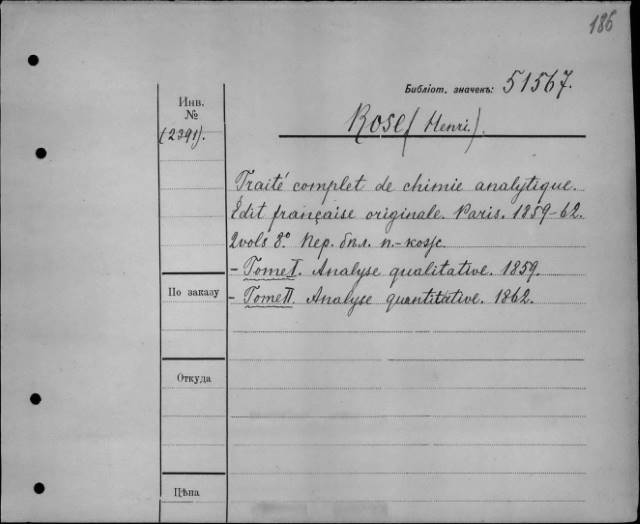 186
Библіот. значекъ: 51567.
Инв.
№
(2391).
Rose (Henri.).
Traité complet de chimie analytique.
Édit française originale. Paris. 1859-62.
2 vols 8º. Пер. бпл. п.-кож.
- Tome I. Analyse qualitative. 1859.
По заказу
- Tome II. Analyse quantitative. 1862.
Откуда
Цѣна